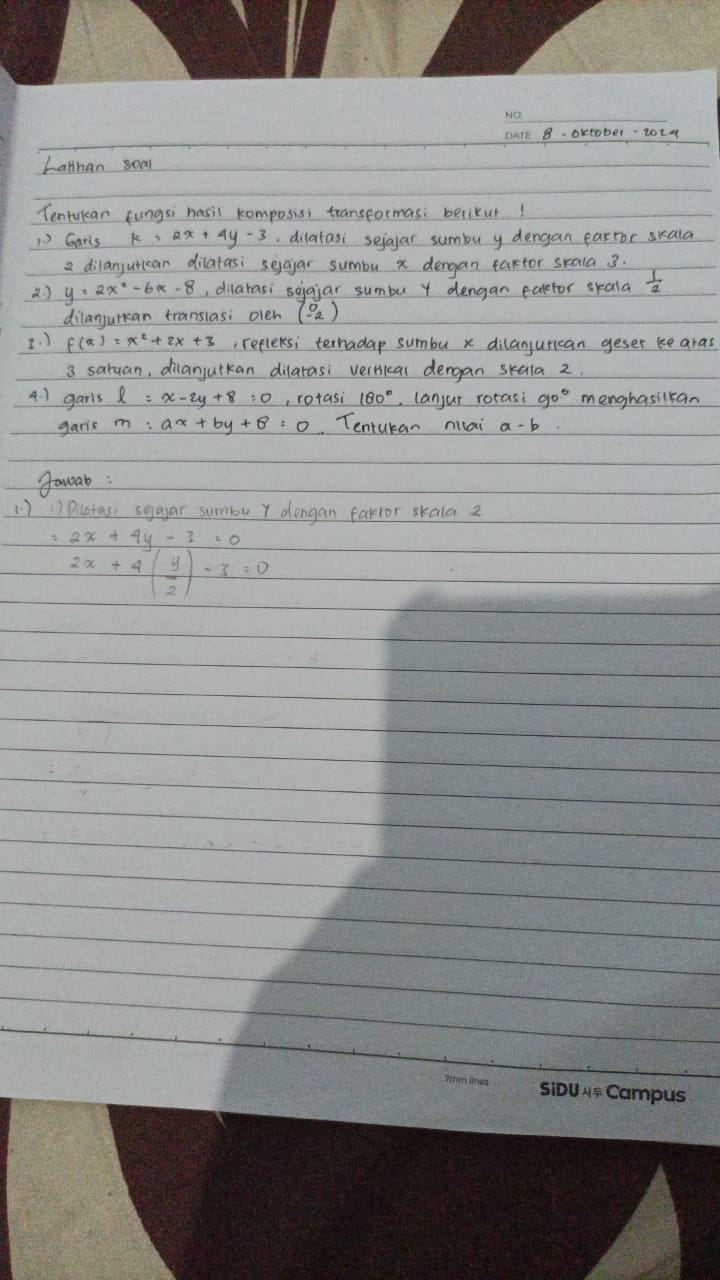 NO.
DATE 8 - Oktober - 2024
Latihan soal
Tentukan fungsi hasil komposisi transformasi berikut !
1.) Garis k = 2x + 4y - 3. dilatasi sejajar sumbu y dengan faktor skala
2 dilanjutkan dilatasi sejajar sumbu x dengan faktor skala 3.
2.) y = 2x² - 6x - 8, dilatasi sejajar sumbu Y dengan faktor skala 1/2
dilanjutkan translasi oleh (0 -2)
3.) f(x) = x² + 2x + 3, refleksi terhadap sumbu x dilanjutkan geser ke atas
3 satuan, dilanjutkan dilatasi vertikal dengan skala 2.
4.) garis l = x - 2y + 8 = 0, rotasi 180°, lanjut rotasi 90° menghasilkan
garis m : ax + by + 8 = 0. Tentukan nilai a-b.
Jawab :
1.) 1) Dilatasi sejajar sumbu Y dengan faktor skala 2
= 2x + 4y - 3 = 0
2x + 4 (y/2) - 3 = 0
7mm lines
SiDU 시두 Campus